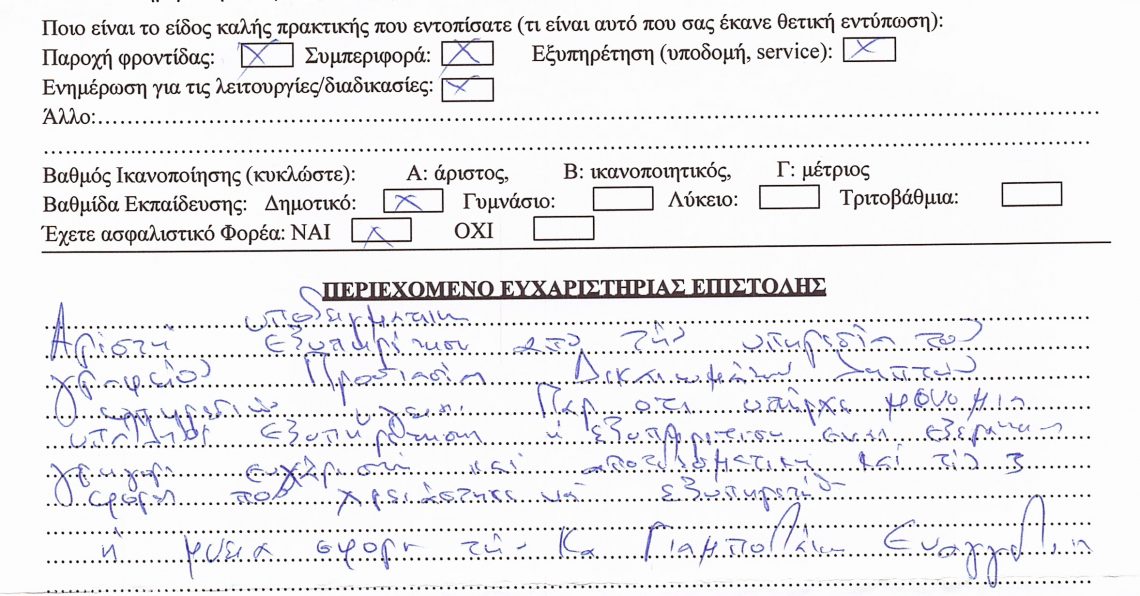 Ποιο είναι το είδος καλής πρακτικής που εντοπίσατε (τι είναι αυτό που σας έκανε θετική εντύπωση):
Παροχή φροντίδας: Χ Συμπεριφορά: Χ Εξυπηρέτηση (υποδομή, service): Χ
Ενημέρωση για τις λειτουργίες/διαδικασίες: Χ
Άλλο:
Βαθμός Ικανοποίησης (κυκλώστε): Α: άριστος, Β: ικανοποιητικός, Γ: μέτριος
Βαθμίδα Εκπαίδευσης: Δημοτικό: Χ Γυμνάσιο: Λύκειο: Τριτοβάθμια:
Έχετε ασφαλιστικό Φορέα: ΝΑΙ Χ ΟΧΙ
ΠΕΡΙΕΧΟΜΕΝΟ ΕΥΧΑΡΙΣΤΗΡΙΑΣ ΕΠΙΣΤΟΛΗΣ
υποδειγματικη
Αριστη εξυπηρετηση απο την υπηρεσια του
γραφειου Προστασια Δικαιωματων Ληπτων
υπηρεσιων υγειας. Παρ οτι υπαρχει μονο μια
υπαλληλος εξυπηρετησης η εξυπηρετηση ειναι
γρηγορη ευχαριστη και αποτελεσματικη και τις 3
φορες που χρειαστηκε να εξυπηρετηθω
η μνεια αφορα την Κα Γιαμπολακη Ευαγγελια